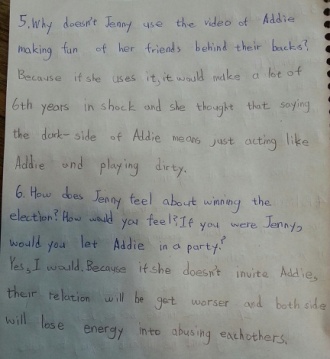 5. Why doesn't Jenny use the video of Addie
making fun of her friends behind their backs?
Because if she uses it, it would make a lot of
6th years in shock and she thought that saying
the dark-side of Addie means just acting like
Addie and playing dirty.
6. How does Jenny feel about winning the
election? How would you feel? If you were Jenny,
would you let Addie in a party?
Yes, I would. Because if she doesn't invite Addie,
their relation will be got worser and both side
will lose energy into abusing eachothers.